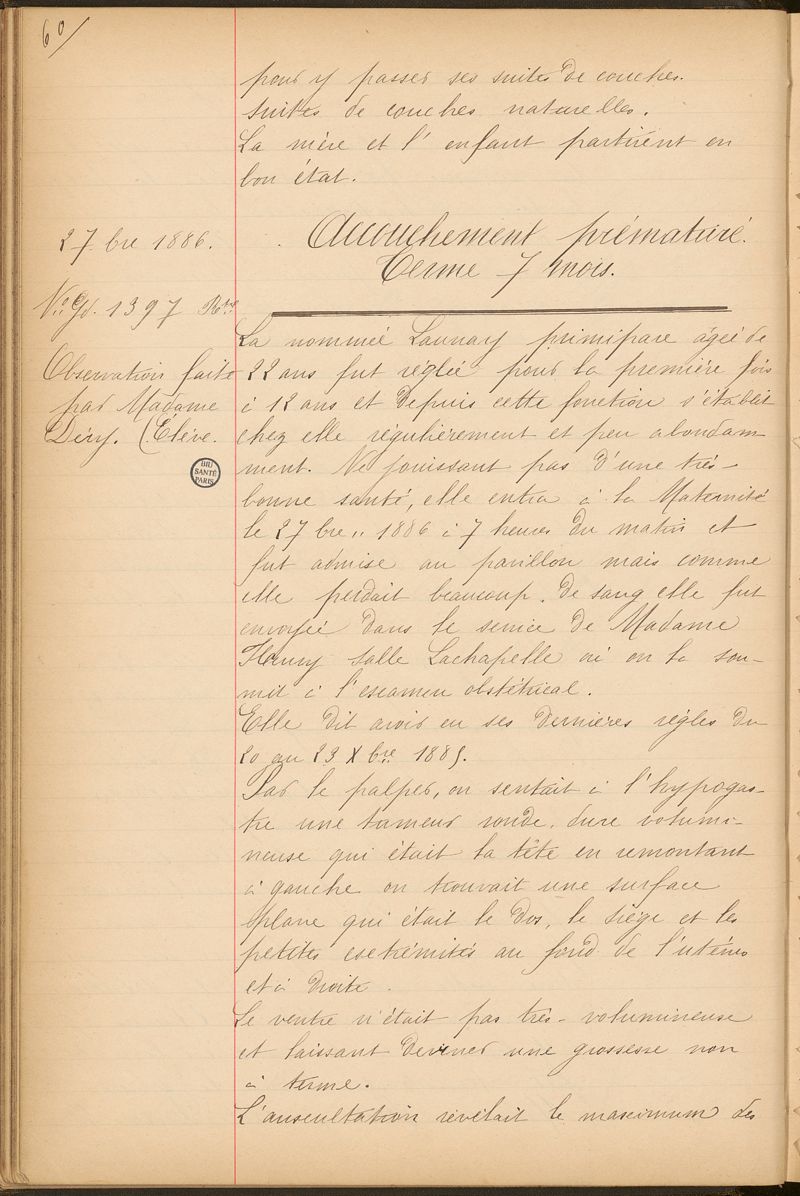 60/
pour y passer ses suites de couches.
Suites de couches naturelles.
La mère et l'enfant partirent en
bon état.
27 bre 1886.
Accouchement prématuré.
Terme 7 mois.
No. Gd. 1397 Rtre
Observation faite
par Madame
Déry. (Elève.
BIU
SANTÉ
PARIS
La nommée Launay primipare âgée de
22 ans fut réglée pour la première fois
à 12 ans et depuis cette fonction s'établit
chez elle régulièrement et peu abondam
ment. Ne jouissant pas d'une très-
bonne santé, elle entra à la Maternité
le 27 bre 1886 à 7 heures du matin et
fut admise au pavillon mais comme
elle perdait beaucoup de sang elle fut
envoyée dans le service de Madame
Henry salle Lachapelle où on la sou-
mit à l'examen obstétrical.
Elle dit avoir eu ses dernières règles du
20 au 23 X bre 1885.
Par le palper, on sentait à l'hypogas-
tre une tumeur ronde, dure volumi-
neuse qui était la tête en remontant
à gauche on trouvait une surface
plane qui était le dos, le siège et les
petites extrémités au fond de l'utérus
et à droite.
Le ventre n'était pas très-volumineuse
et laissant deviner une grossesse non
à terme.
L'auscultation révélait le maximum des